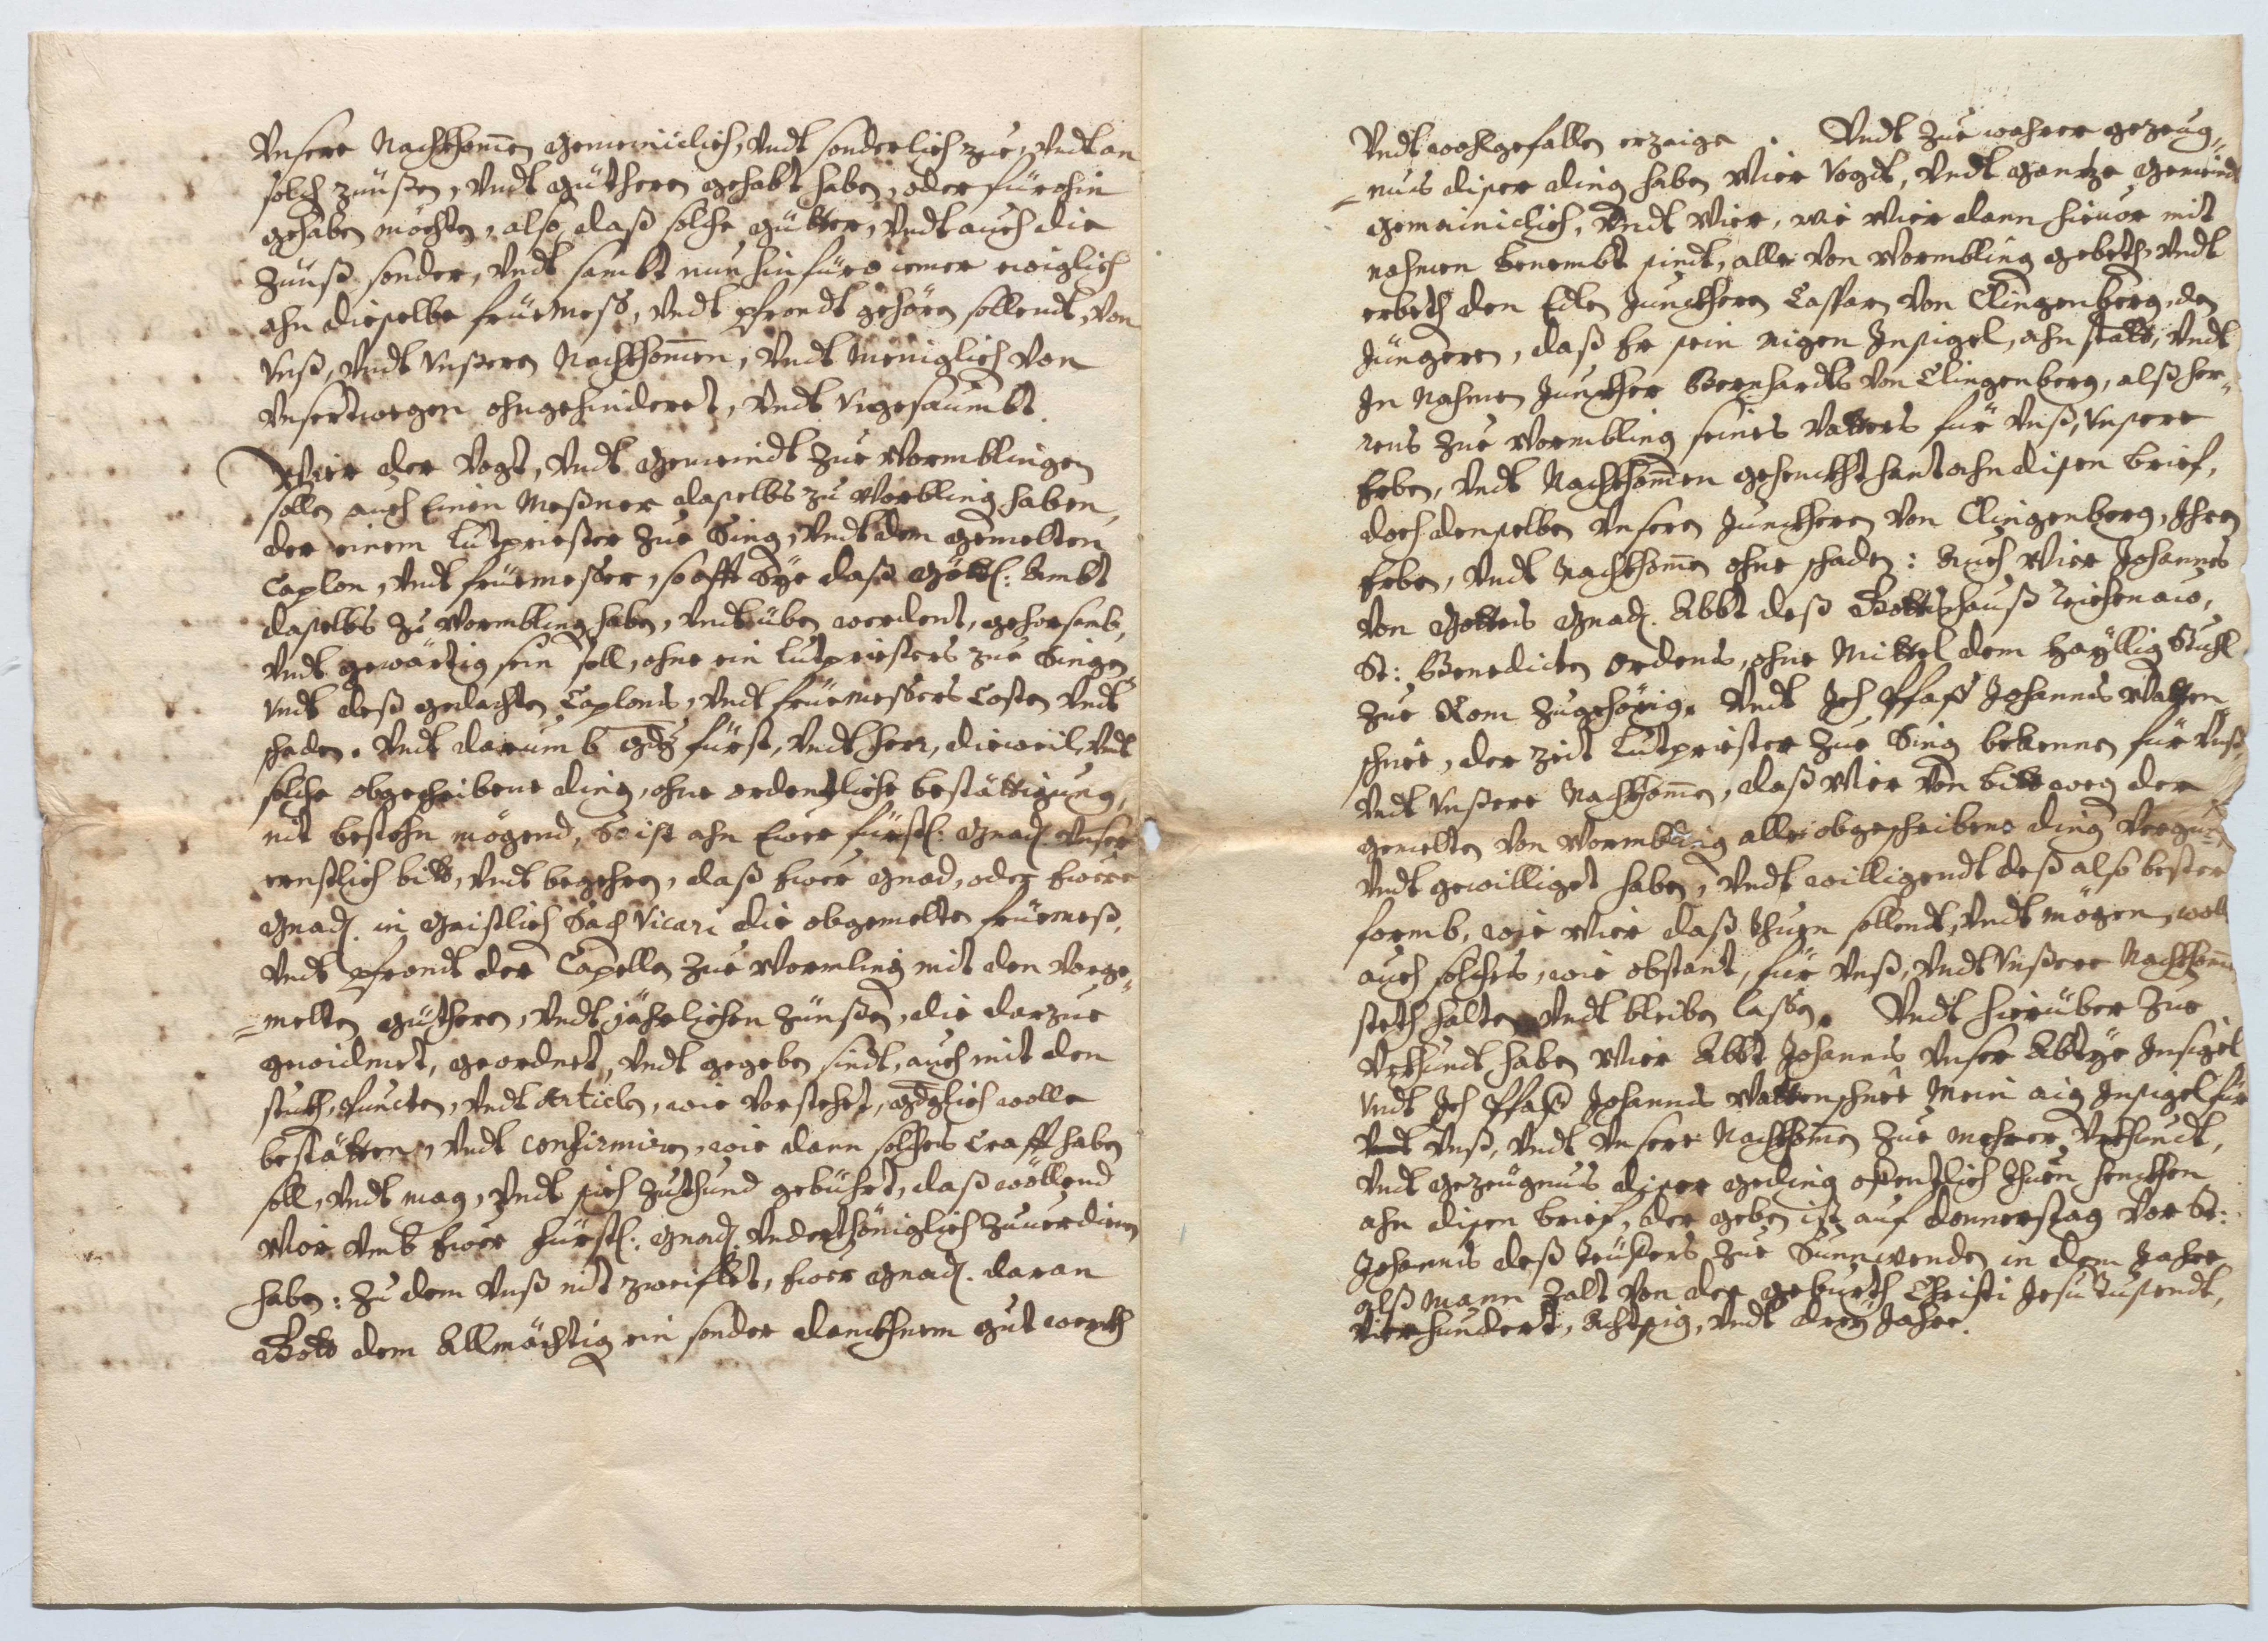 Vnsere Nachkhom̄en gemeinicilich, Vndt sonderlich zue, Vndt an
solch zinßen, Vndt güthern gehabt haben, oder fürohin
gehaben möchten, also, daß solche gütter, Vndt auch die
Zinß sonder, Vndt sambt nun hinfüro iemer ewiglich
ahn dieselbe früemess, Vndt pfrondt gehören sollendt, Von
Vnß, Vndt Vnßeren Nachkhom̄en, Vndt Meniglich von
Vnsertwegen ohngehinderet, Vndt Vngesaumbt.
Wier der Vogt, Vndt Gemeindt zue Wormblingen
sollen auch Einen Meßner daselbs zu Worbling haben,
der einem Lütpriester zue Sing, Vndt dem gemelten
Caplon, Vndt früemesser, so offt Sye daß Göttl: Ambt
daselbs zu Wormbling haben, Vndt üben werdent, gehorsamb,
Vndt gewärtig sein soll, ohne ein Lütpriesters zue Singen
Vndt deß gedachten Caplons, Vndt früemessers Costen Vndt
schaden. Vndt darumb gdg fürst, Vndt Herr, dieweil, Vndt
solche obgeschribene ding, ohne ordentzliche bestättigung,
nit bestehn mögend, So ist ahn Ewer fürstl: Gnad. Vnser
ernstlich bitt, Vndt begehren, daß Ewer Gnad, oder Ewere
Gnad. in Gaistlich Sach Vicari die obgemelten früemeß,
Vndt pfrondt der Capellen zue Wormling mit den Vorge„
„melten güthern, Vndt jährlichen Zinßen, die darzue
gewidmet, geordnet, Vndt gegeben sindt, auch mit den
stuckh, Puncten, Vndt Articln, wie Vorstehet, gdglich wolle
bestätten, Vndt confirmiren, wie dann solches Crafft haben
soll, Vndt mag, Vndt sich zuthund gebührt, daß wöllend
Wir Vmb Ewer fürstl: Gnad. Vnderthöniglich zuuerdienen
haben: Zu dem Vnß nit zweifflet, Ewer Gnad. daran
Gott dem Allmächtig ein sonder danckhnem gut werckh
Vndt wohlgefallen erzaige. Vndt zue wahrer gezeug„
„nus diser ding haben Wier Vogt, Vndt gantze gemeindt
gemeiniclich, Vndt Wier, wie Wier dann hieuor mit
nahmen benembt sindt, alle von Wormbling gebeth, Vndt
erbeth den Edlen Junckhern Casparn von Clingenberg, den
Jüngern, daß Er sein aigen Insigel, ahn statt, Vndt
In Nahmen Junckher Bernhardts von Clingenberg, alß her„
rens zue Wormbling seines Vatters für Vnß, Vnsere
Erben, Vndt Nachkhom̄en gehenckht hant ahn disen brief,
doch denselben Vnseren Junckhern von Clingenberg, Ihren
Erben, Vndt Nachkhom̄en ohne schaden: Auch Wier Johannes
Von Gottes Gnad. Abbt deß Gottshauß Reichenaw,
St: Benedicten Ordens, ohne Mittel dem Hayllig Stuhl
zue Rom zugehörig. Vndt Ich Pfaff Johannes Watten„
schnee, der Zeit Lütpriester zue Sing bekennen für Vnß,
Vndt Vnßere Nachkhom̄en, daß Wier von bitt weg der
gemelten von Wormbling alle obgeschribene ding Vergunt,
Vndt gewilliget haben, Vndt willigendt deß also bester
formb, wie Wier daß thuen sollendt, Vndt mögen, woll
auch solches, wie obstant, für Vnß, Vndt Vnßere Nachkhom̄en
steth halten, Vndt bleiben lassen. Vndt hierüber zue
Vrkhundt haben Wier Abbt Johannes Vnser Abtye Insigel
Vndt Ich Pfaff Johannes Wattenschnee Mein aig Insigel für
Vndt Vnß, Vndt Vnsere Nachkhom̄en zue mehrer Vrkhundt,
Vndt gezeügnus diser geding offentzlich thuen henckhen
ahn disen brief, der geben ist auf donnerstag vor St:
Johannis deß teüffers zue Sunnwenden in dem Jahre
alß Mann zalt von der geburth Christi Jesu Tusendt,
Vierhundert, Achtzig, Vndt drey Jahre.